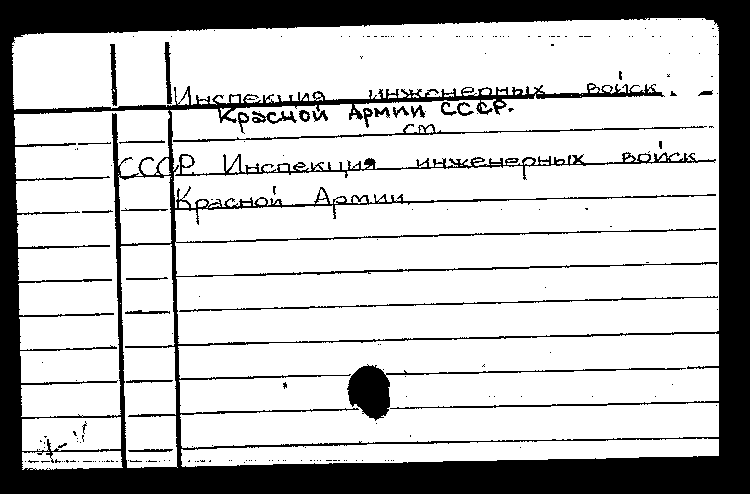 Инспекция инженерных войск
Красной Армии СССР.
см.
СССР. Инспекция инженерных войск
Красной Армии.